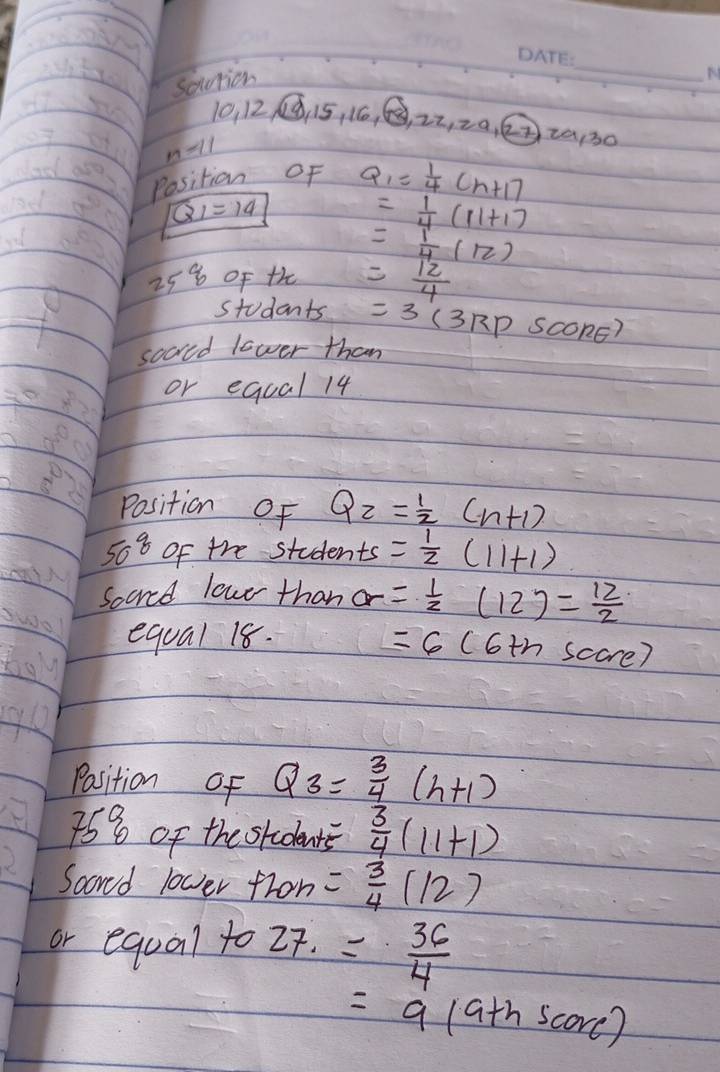 DATE:
Solution
10, 12, 14, 15, 16, 18, 22, 29, 27, 29, 30
n=11
Position OF Q1 = 1/4 (n+1)
Q1 = 14 = 1/4 (11+1)
= 1/4 (12)
25% OF the = 12/4
students = 3 (3RD SCORE)
scored lower than
or equal 14
Position OF Q2 = 1/2 (n+1)
50% OF the students = 1/2 (11+1)
scored lower than or = 1/2 (12) = 12/2
equal 18. = 6 (6th score)
Position OF Q3 = 3/4 (n+1)
75% OF the students = 3/4 (11+1)
Scored lower than = 3/4 (12)
or equal to 27. = 36/4
= 9 (9th score)